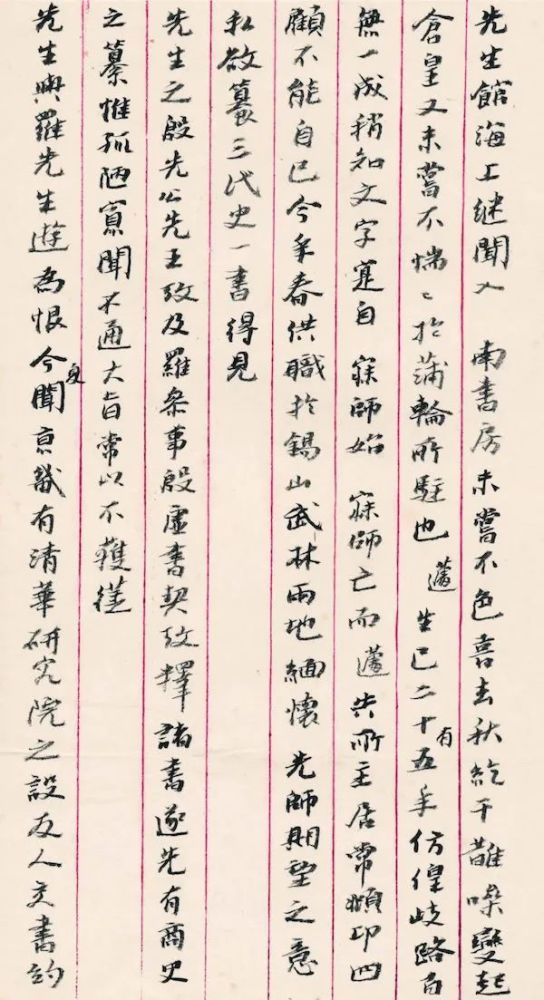 先生館海上继聞入　南書房未嘗不色喜去秋紇干雛噪變起
倉皇又未嘗不惴〻於蒲輪所駐也蘧生已二十有五年仿偟歧路百
無一成稍知文字寔自　寐師始　寐師亡而蘧失所主居常頫卬四
顧不能自已今年春供職於錫山武林兩地緬懷　先師期望之意
私欲纂三代史一書得見
先生之殷先公先王攷及羅叅事殷虛書契攷釋諸書遂先有商史
之纂惟孤陋寡聞不通大旨常以不獲從
先生與羅先生遊為恨今夏聞京畿有清華研究院之設友人交書約